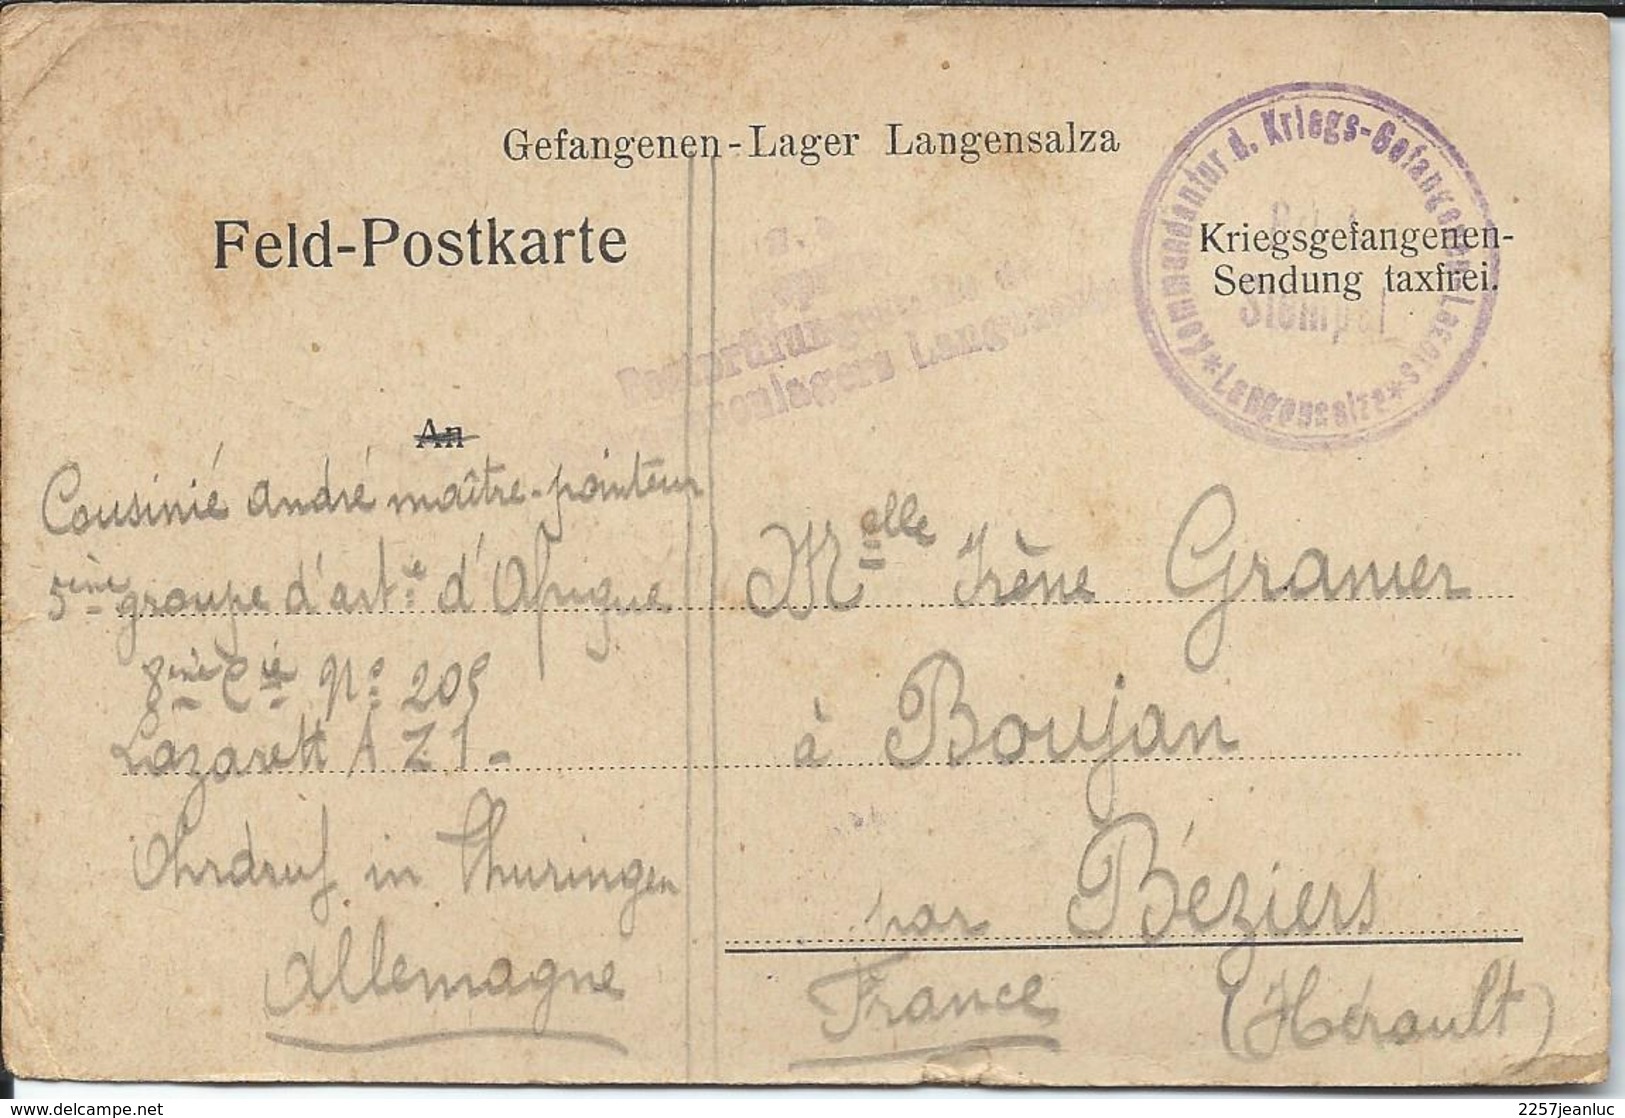 Gefangenen-Lager Langensalza
Feld-Postkarte
Kommandantur d. Kriegs-Gefangenen-Lagers
*Langensalza*
Stempel
Kriegsgefangenen-
Sendung taxfrei.
Langensalza
An
Cousinié André maître-pointeur
5ème groupe d'artie d'Afrique
8ème Cie No 205
Lazarett A Z 1-
Ohrdruf in Thuringen
Allemagne
Melle Irène Granier
à Boujan
par Béziers
France (Hérault)
2257jeanluc